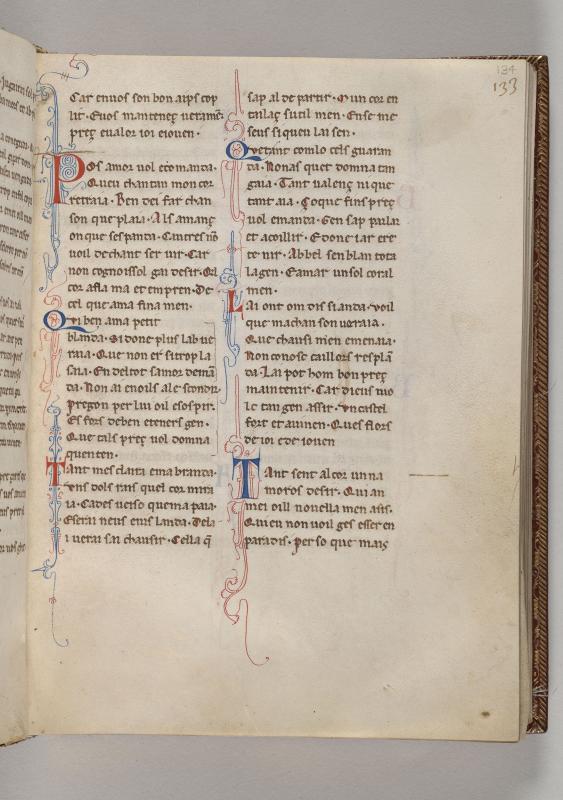 134
133
Car enuos son bon aips cop
lit. Euos mantenez ueramē
prez eualor ioi eiouen.
Pos amor uol ecomanda.
Queu chantan mon cor
retraia. Ben dei far chan
son que plaia. Als amanz
on que ses panda. Cautres nō
uoil dechant ser uir. Car
non cognoissol gan desir. Qil
cor afla ma et empren. De
cel que ama fina men.
Qi ben ama petit
blanda. Si done plus lab ue
raia. Que non er sitrop la
saia. En deltot samor demā
da. Non ai enoils ale scondir.
Pregon per lui oil esospir.
Es fors deben eteners gen.
Que tals prez uol domna
quenten.
Tant mes clara ema branda.
uns dols rais quel cor mi
ra ia. Cades ueiso quema paia.
Eserai neus eius landa. Dela
i uerai san chausir. Cella q̄
sap al de partir. Mun cor en
tailaz sutil men. Ense me
seus si quen lai sen.
Qvetant comlo cels guaran
da. Nonas quer domna tan
gaia. Tant ualenz ni que
tant aia. Zo que fins prez
uol emanda. Gen sap parlar
et acoillir. Edone iar ere
te nir. Abbel sen blan tota
lagen. Eamar unsol coral
men.
Lai ont om dis si anda. Voil
que machan son ueraia.
Que chausi mien emenaia.
Non conosc taillors resplā
da. Lai pot hom bon prez
maintenir. Car dieus uo
le tan gen assir. Vn castel
fort et auinen. Ques flors
de ioi e de iouen
Tant sent al cor un na
moros desir. Qui an
mei oill nouella men asis.
Qui eu non uoil ges esser en
paradis. Per so que mais